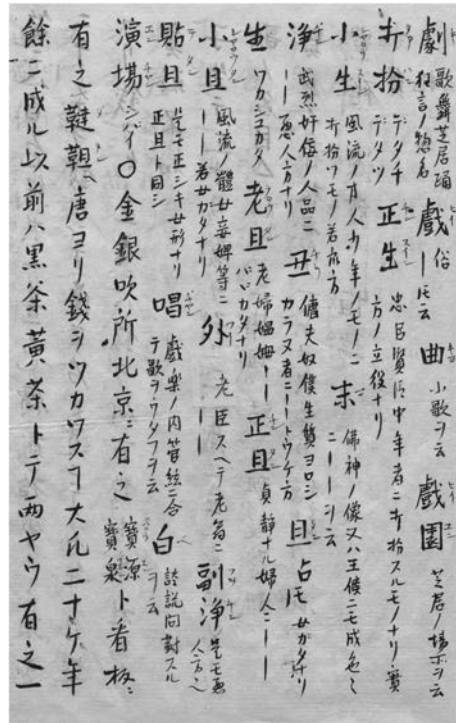 劇 歌舞芝居踊狂言ノ惣名 戯 俗ーモ云 曲 小歌ヲ云 戯園 芝居ノ場ヲ云
扮 デタチデタツ 正生 忠臣賢臣中年者ニ扮スルモノナリ實方ノ立役ナリ
小生 風流ノ才人少年ノモノニ扮ツモノ若衆方 末 佛神ノ像又ハ王侯ニモ成色〻ニーーヲ云
浄 武烈奸佞ノ人品ニーー悪人方ナリ 丑 傭夫奴僕生質ヨロシカラヌ者ニーートウケ方 旦 占モ女ガタナリ
生 ツカシコカタ 老旦 老婦媼姆ーーバヽカタナリ 正旦 貞静ナル婦人ニーー
小旦 風流ノ艶女妾婢等ニーー若女ガタナリ 外 老臣スヘテ老翁ニーー 副浄 是モ悪人方也
貼旦 是モ正シキ女形ナリ正旦ト同シ 唱 戯楽ノ内管絃ニ合テ歌ヲウタフヲ云 白 談説問對スルヲ云
演場 シバイ 〇金銀吹所北京ニ有之 寳源寳泉ト看板ニ
有之韃靼ヘ唐ヨリ錢ヲツカワスヿ大凡二十ケ年
餘ニ成ル以前ハ黒茶黄茶トテ両ヤウ有之一